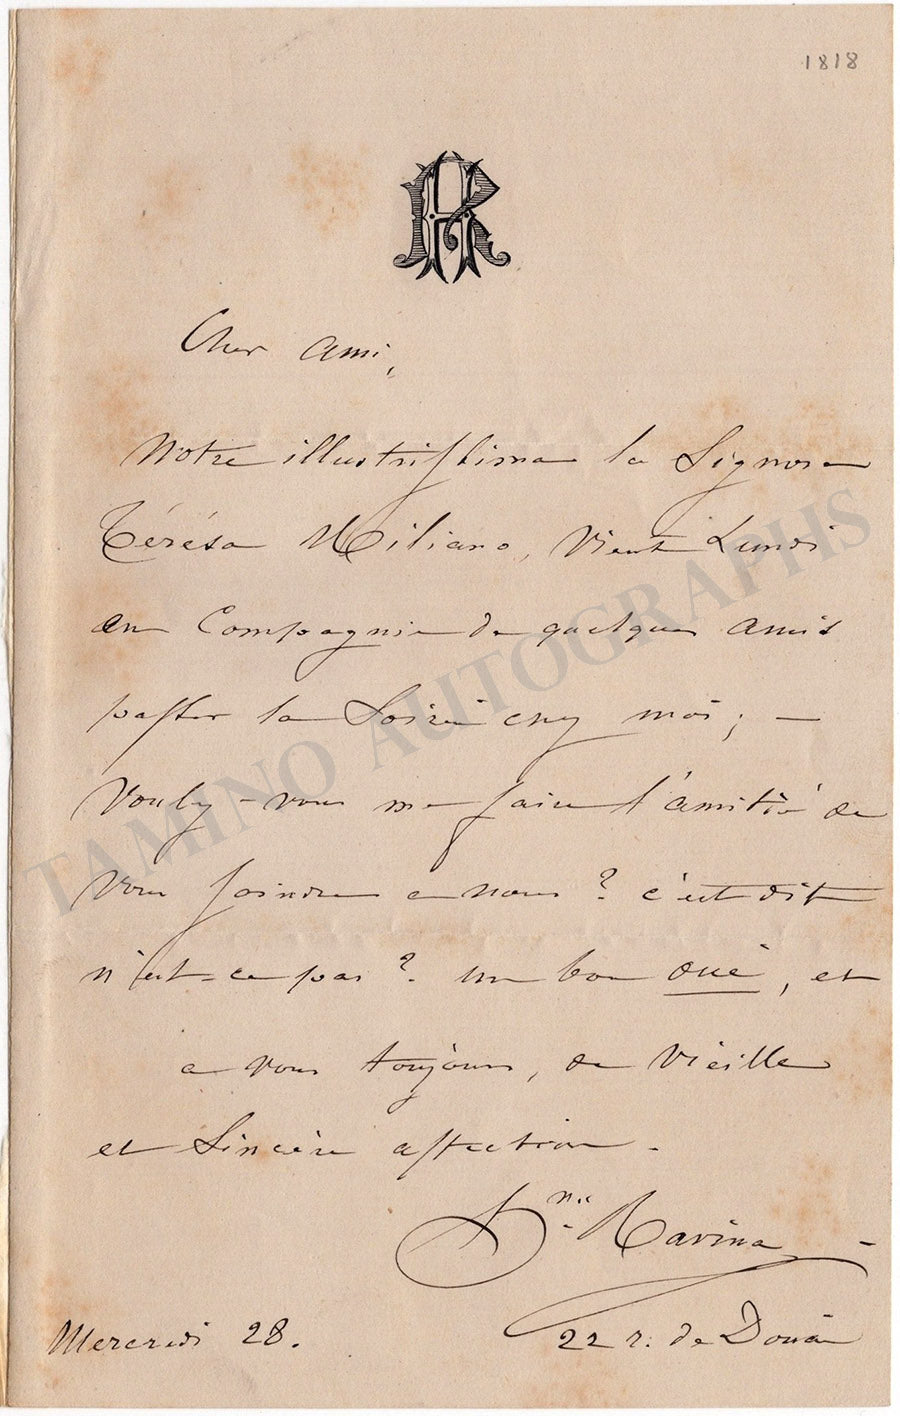 1818
HR
Cher ami,
Notre illustrissima la Signora
Térésa Miliano, vient Lundi
en Compagnie de quelques amis
passer la Soirée chez moi ; —
Voulez-vous me faire l'amitié de
vous joindre a nous ? c'est dit
n'est-ce pas ? un bon oui, et
a vous toujours, de vieille
et Sincère affection.
Ravina
Mercredi 28.
22 r. de Douai
TAMINO AUTOGRAPHS